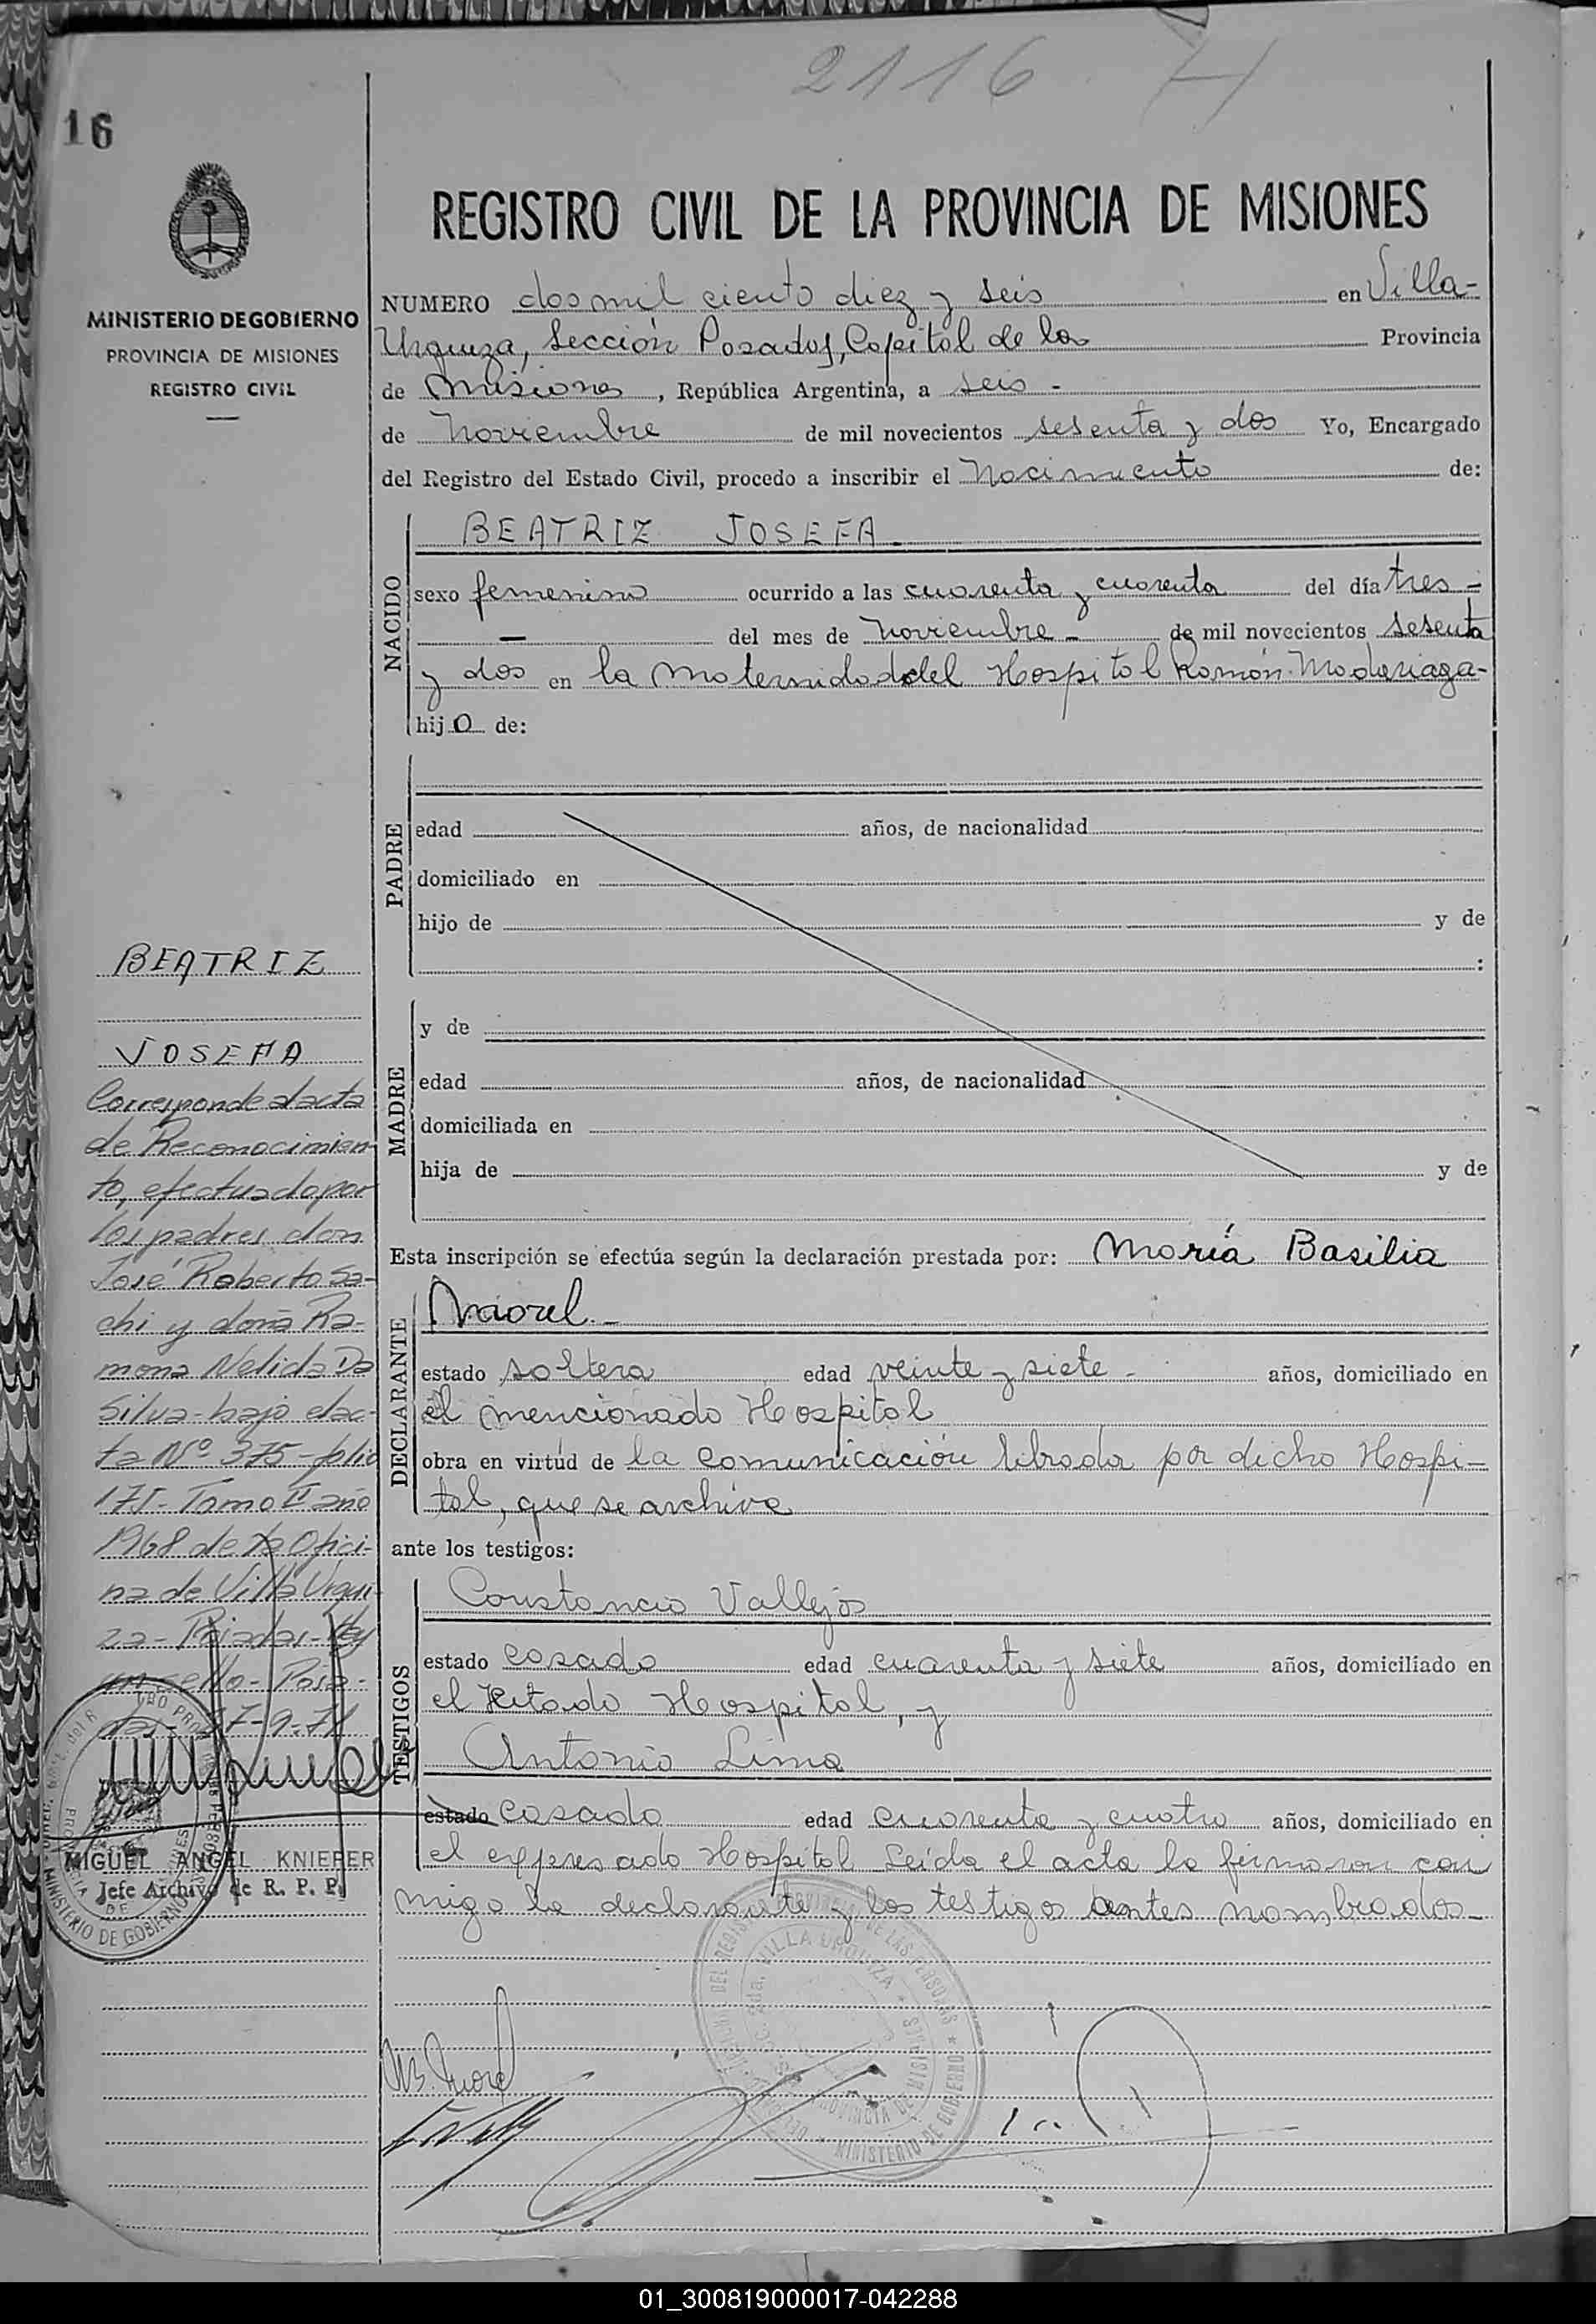 2116 H
16
MINISTERIO DE GOBIERNO
PROVINCIA DE MISIONES
REGISTRO CIVIL
REGISTRO CIVIL DE LA PROVINCIA DE MISIONES
NUMERO dos mil ciento diez y seis en Villa-
Urquiza, Sección Posadas, Capital de la Provincia
de Misiones, República Argentina, a seis -
de Noviembre de mil novecientos sesenta y dos Yo, Encargado
del Registro del Estado Civil, procedo a inscribir el Nacimiento de:
NACIDO
BEATRIZ JOSEFA.
sexo femenino ocurrido a las cuarenta y cuarenta del día tres -
- del mes de Noviembre - de mil novecientos sesenta
y dos en la Maternidad del Hospital Ramón Madariaga-
hijo de:
PADRE
edad años, de nacionalidad
domiciliado en
hijo de y de
:
MADRE
y de
edad años, de nacionalidad
domiciliada en
hija de y de
Esta inscripción se efectúa según la declaración prestada por: María Basilia
DECLARANTE
Maorel.-
estado soltera edad veinte y siete - años, domiciliado en
el mencionado Hospital
obra en virtud de la comunicación librada por dicho Hospi-
tal, que se archiva
ante los testigos:
TESTIGOS
Constancio Vallejos
estado casado edad cuarenta y siete años, domiciliado en
el citado Hospital, y
Antonio Lima
estado casado edad cuarenta y cuatro años, domiciliado en
el expresado Hospital Leída el acta la firmaron con
migo la declarante y los testigos antes nombrados-
BEATRIZ
JOSEFA
Corresponde al acta
de Reconocimien-
to, efectuado por
los padres don
José Roberto Sa-
chi y doña Ra-
mona Nelida Da
Silva-bajo el ac-
ta Nº 375-folio
175-Tomo II año
1968 de la Ofici-
na de Villa Urqui-
za-Posadas-Hay
un sello-Posa-
das-
MIGUEL ANGEL KNIEPER
Jefe Archivo de R. P. P.
MINISTERIO DE GOBIERNO
VILLA URQUIZA
PROVINCIA DE MISIONES
MINISTERIO DE GOBIERNO
01_300819000017-042288